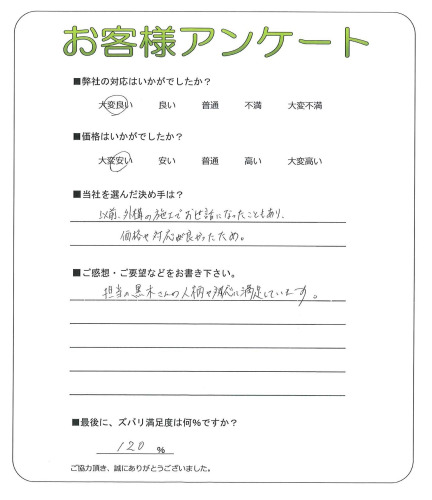 お客様アンケート
■弊社の対応はいかがでしたか？
大変良い 良い 普通 不満 大変不満
■価格はいかがでしたか？
大変安い 安い 普通 高い 大変高い
■当社を選んだ決め手は？
以前、外構の施工でお世話になったこともあり、
価格や対応が良かったため。
■ご感想・ご要望などをお書き下さい。
担当の黒木さんの人柄や対応に満足しています。
■最後に、ズバリ満足度は何％ですか？
120 ％
ご協力頂き、誠にありがとうございました。